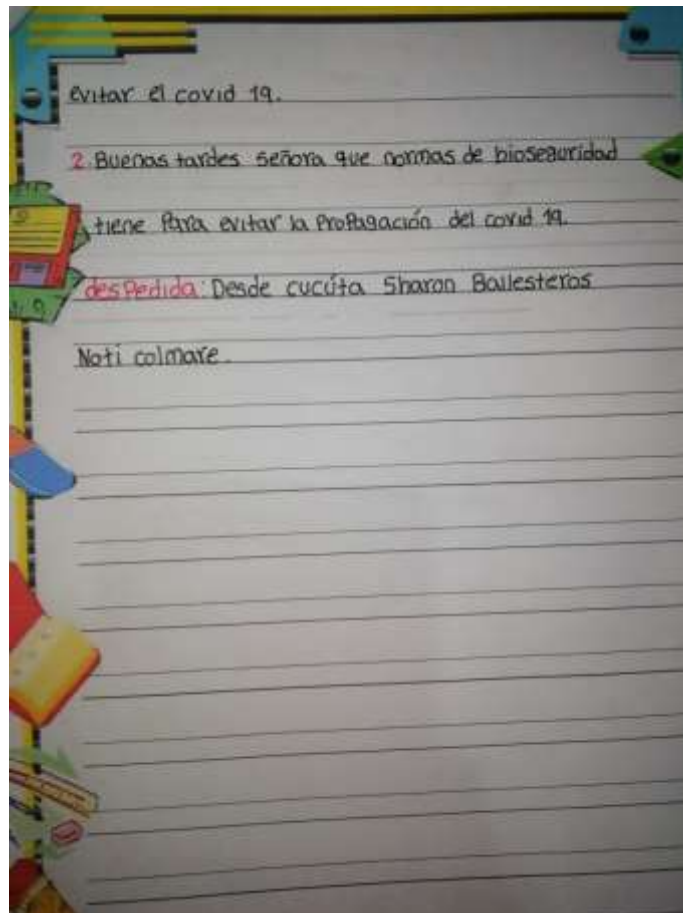 evitar el covid 19.
2. Buenas tardes señora que normas de bioseguridad
tiene Para evitar la ProPagación del covid 19.
desPedida: Desde cucúta Sharon Ballesteros
Noti colmare.